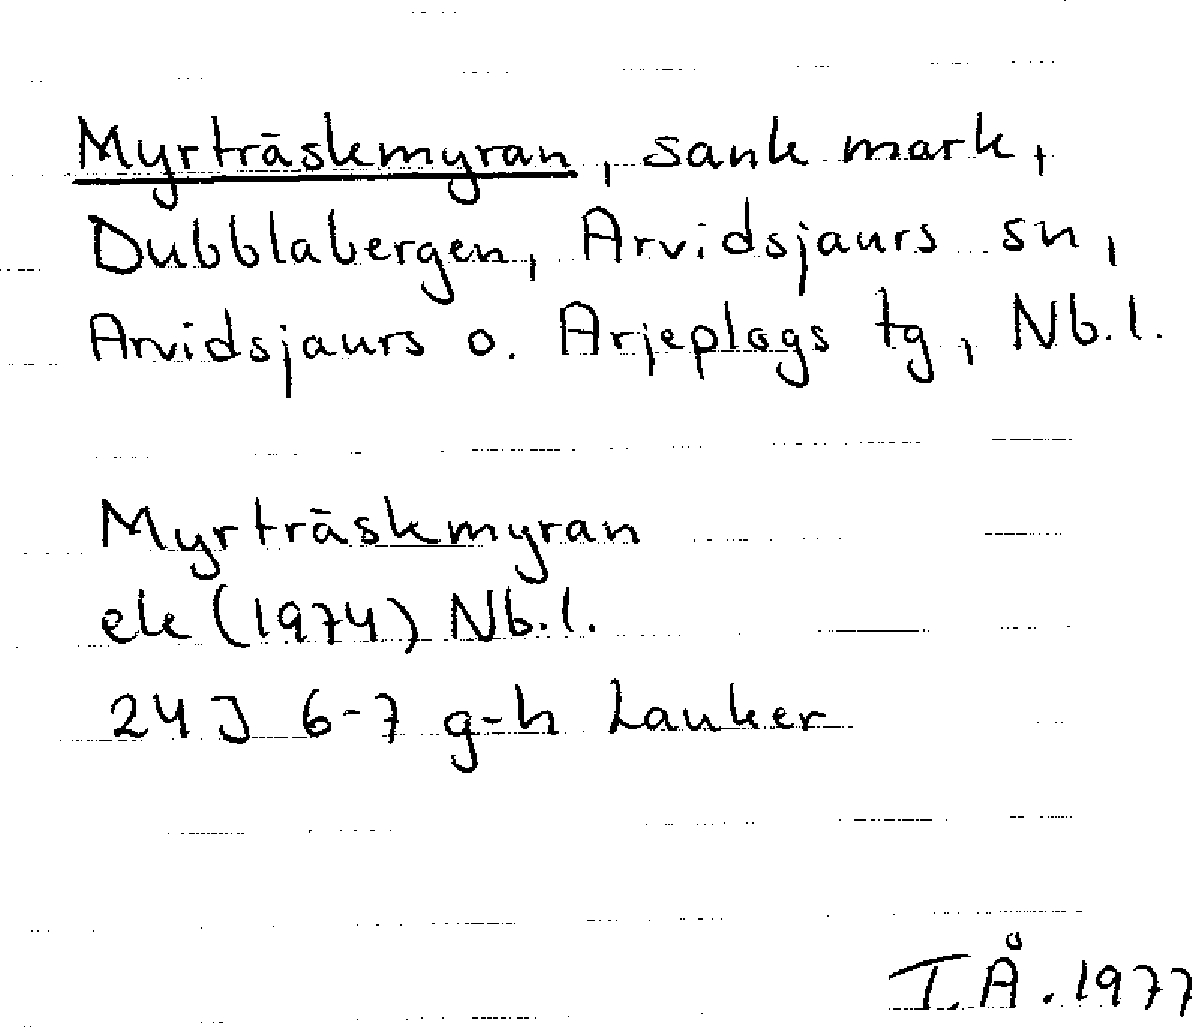 Myrträskmyran, sank mark,
Dubblabergen, Arvidsjaurs sn,
Arvidsjaurs o. Arjeplogs tg, Nb.l.
Myrträskmyran
ek (1974) Nb.l.
24 J 6-7 g-h Lauker
I.Å. 1977